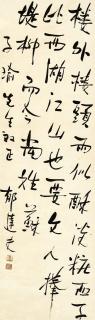 楼外楼頭雨似酥淡粧西子
比西湖江山也要文人捧
堤柳而今尚姓蘇
子瑜先生正
郁達夫